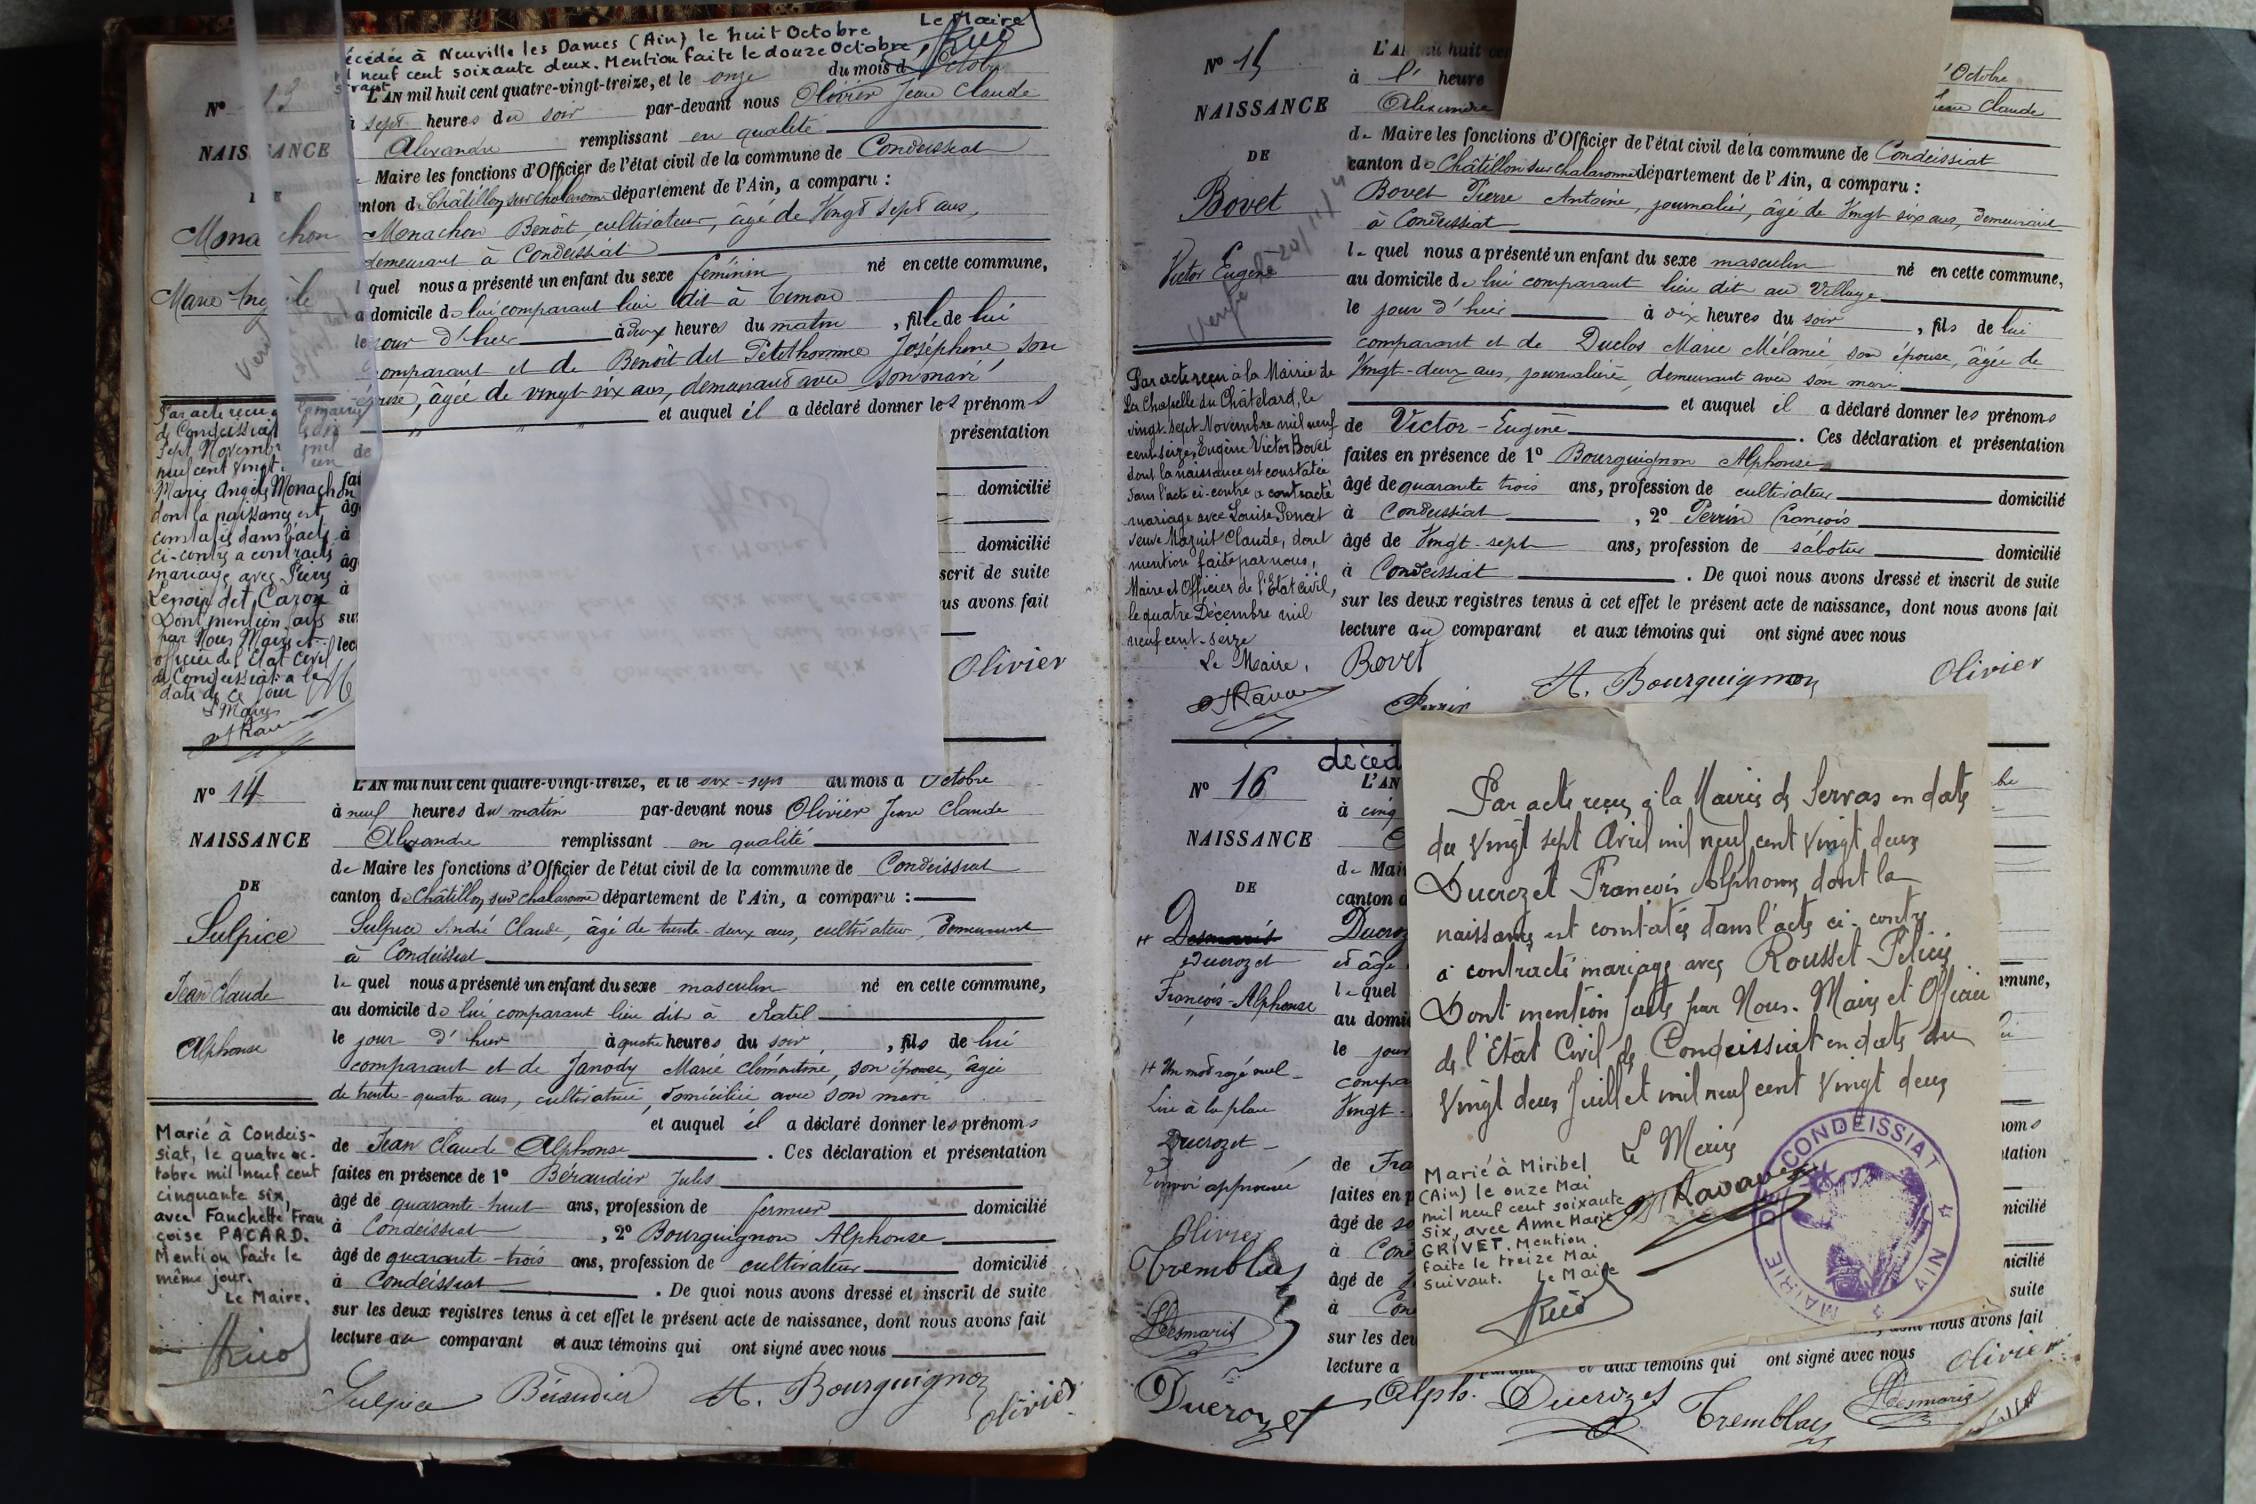 Le Maire
décédée à Neuville les Dames (Ain) le huit Octobre
mil neuf cent soixante deux. Mention faite le douze Octobre
suivant
N° 13
NAISSANCE
DE
Monachon
Marie Angèle
L'AN mil huit cent quatre-vingt-treize, et le onze du mois d'Octobre
à sept heures du soir par-devant nous Olivier Jean Claude
Alexandre remplissant en qualité
de Maire les fonctions d'Officier de l'état civil de la commune de Condeissiat
canton de Châtillon sur Chalaronne département de l'Ain, a comparu :
Monachon Benoît, cultivateur, âgé de Vingt sept ans,
demeurant à Condeissiat
lequel nous a présenté un enfant du sexe féminin né en cette commune,
au domicile de lui comparant lieu dit à Timon
le jour d'hier à deux heures du matin, fille de lui
comparant et de Benoît dit Petithomme Joséphine son
épouse, âgée de vingt six ans, demeurant avec son mari
et auquel il a déclaré donner les prénoms
présentation
domicilié
domicilié
scrit de suite
us avons fait
Olivier
Par acte reçu à la mairie
de Condeissiat le dix
sept Novembre mil
neuf cent vingt un
Marie Angèle Monachon
dont la naissance est
constatée dans l'acte
ci-contre a contracté
mariage avec Pierre
Lenoir dit Caron
Dont mention faite
par Nous Maire et
officier de l'Etat Civil
de Condeissiat à la
date de ce jour
Le Maire
N° 14
NAISSANCE
DE
Sulpice
Jean Claude
Alphonse
L'AN mil huit cent quatre-vingt-treize, et le dix-sept du mois d'Octobre
à neuf heures du matin par-devant nous Olivier Jean Claude
Alexandre remplissant en qualité
de Maire les fonctions d'Officier de l'état civil de la commune de Condeissiat
canton de Châtillon sur Chalaronne département de l'Ain, a comparu :
Sulpice André Claude, âgé de trente-deux ans, cultivateur, demeurant
à Condeissiat
lequel nous a présenté un enfant du sexe masculin né en cette commune,
au domicile de lui comparant lieu dit à Ratel
le jour d'hier à quatre heures du soir, fils de lui
comparant et de Janody Marie Clémentine, son épouse, âgée
de trente-quatre ans, cultivatrice, domiciliée avec son mari
et auquel il a déclaré donner les prénoms
de Jean Claude Alphonse. Ces déclaration et présentation
faites en présence de 1° Béraudier Jules
âgé de quarante huit ans, profession de fermier domicilié
à Condeissiat, 2° Bourguignon Alphonse
âgé de quarante-trois ans, profession de cultivateur domicilié
à Condeissiat. De quoi nous avons dressé et inscrit de suite
sur les deux registres tenus à cet effet le présent acte de naissance, dont nous avons fait
lecture au comparant et aux témoins qui ont signé avec nous
Sulpice Béraudier A. Bourguignon Olivier
Marié à Condeis-
siat, le quatre oc-
tobre mil neuf cent
cinquante six,
avec Fanchette Fran
çoise PACARD.
Mention faite le
même jour.
Le Maire,
N° 15
NAISSANCE
DE
Bovet
Victor Eugène
L'AN mil huit cent
à l' heure
Alexandre
Octobre
Jean Claude
de Maire les fonctions d'Officier de l'état civil de la commune de Condeissiat
canton de Châtillon sur Chalaronne département de l'Ain, a comparu :
Bovet Pierre Antoine, journalier, âgé de Vingt six ans, demeurant
à Condeissiat
lequel nous a présenté un enfant du sexe masculin né en cette commune,
au domicile de lui comparant lieu dit au Village
le jour d'hier à dix heures du soir, fils de lui
comparant et de Duclos Marie Mélanie, son épouse, âgée de
Vingt-deux ans, journalière, demeurant avec son mari
et auquel il a déclaré donner les prénoms
de Victor-Eugène. Ces déclaration et présentation
faites en présence de 1° Bourguignon Alphonse
âgé de quarante trois ans, profession de cultivateur domicilié
à Condeissiat, 2° Perrin François
âgé de Vingt-sept ans, profession de sabotier domicilié
à Condeissiat. De quoi nous avons dressé et inscrit de suite
sur les deux registres tenus à cet effet le présent acte de naissance, dont nous avons fait
lecture au comparant et aux témoins qui ont signé avec nous
Bovet A. Bourguignon Olivier
Perrin
Par acte reçu à la Mairie de
La Chapelle du Châtelard, le
vingt-sept Novembre mil neuf
cent seize, Eugène Victor Bovet
dont la naissance est constatée
dans l'acte ci-contre a contracté
mariage avec Louise Poncet
veuve Mazuit Claude, dont
mention faite par nous,
Maire et Officier de l'Etat civil,
le quatre Décembre mil
neuf cent-seize
Le Maire,
décéd
N° 16
NAISSANCE
DE
Desmaris
Ducrozet
François-Alphonse
Un mot rayé nul
Lire à la place
Ducrozet
Renvoi approuvé
Olivier
Tremblay
Desmaris
L'AN
à cinq
de Mair
canton d
Ducroz
et âgé
lequel
au domi
le jour
compa
Vingt-
de Fra
faites en p
âgé de
à Cond
âgé de
à Con
sur les deu
lecture a
mmune,
noms
ntation
micilié
micilié
suite
dont nous avons fait
et aux témoins qui ont signé avec nous
Olivier
Ducrozet Alph. Ducrozet Tremblay Desmaris
Par acte reçu à la Mairie de Servas en date
du vingt sept Avril mil neuf cent vingt deux
Ducrozet François Alphonse dont la
naissance est constatée dans l'acte ci-contre
a contracté mariage avec Rousset Félicie
Dont mention faite par Nous. Maire et Officier
de l'Etat Civil de Condeissiat en date du
vingt deux Juillet mil neuf cent vingt deux
Le Maire
Marié à Miribel
(Ain) le onze Mai
mil neuf cent soixante
six, avec Anne Marie
GRIVET. Mention
faite le treize Mai
suivant. Le Maire
MAIRIE DE CONDEISSIAT
AIN